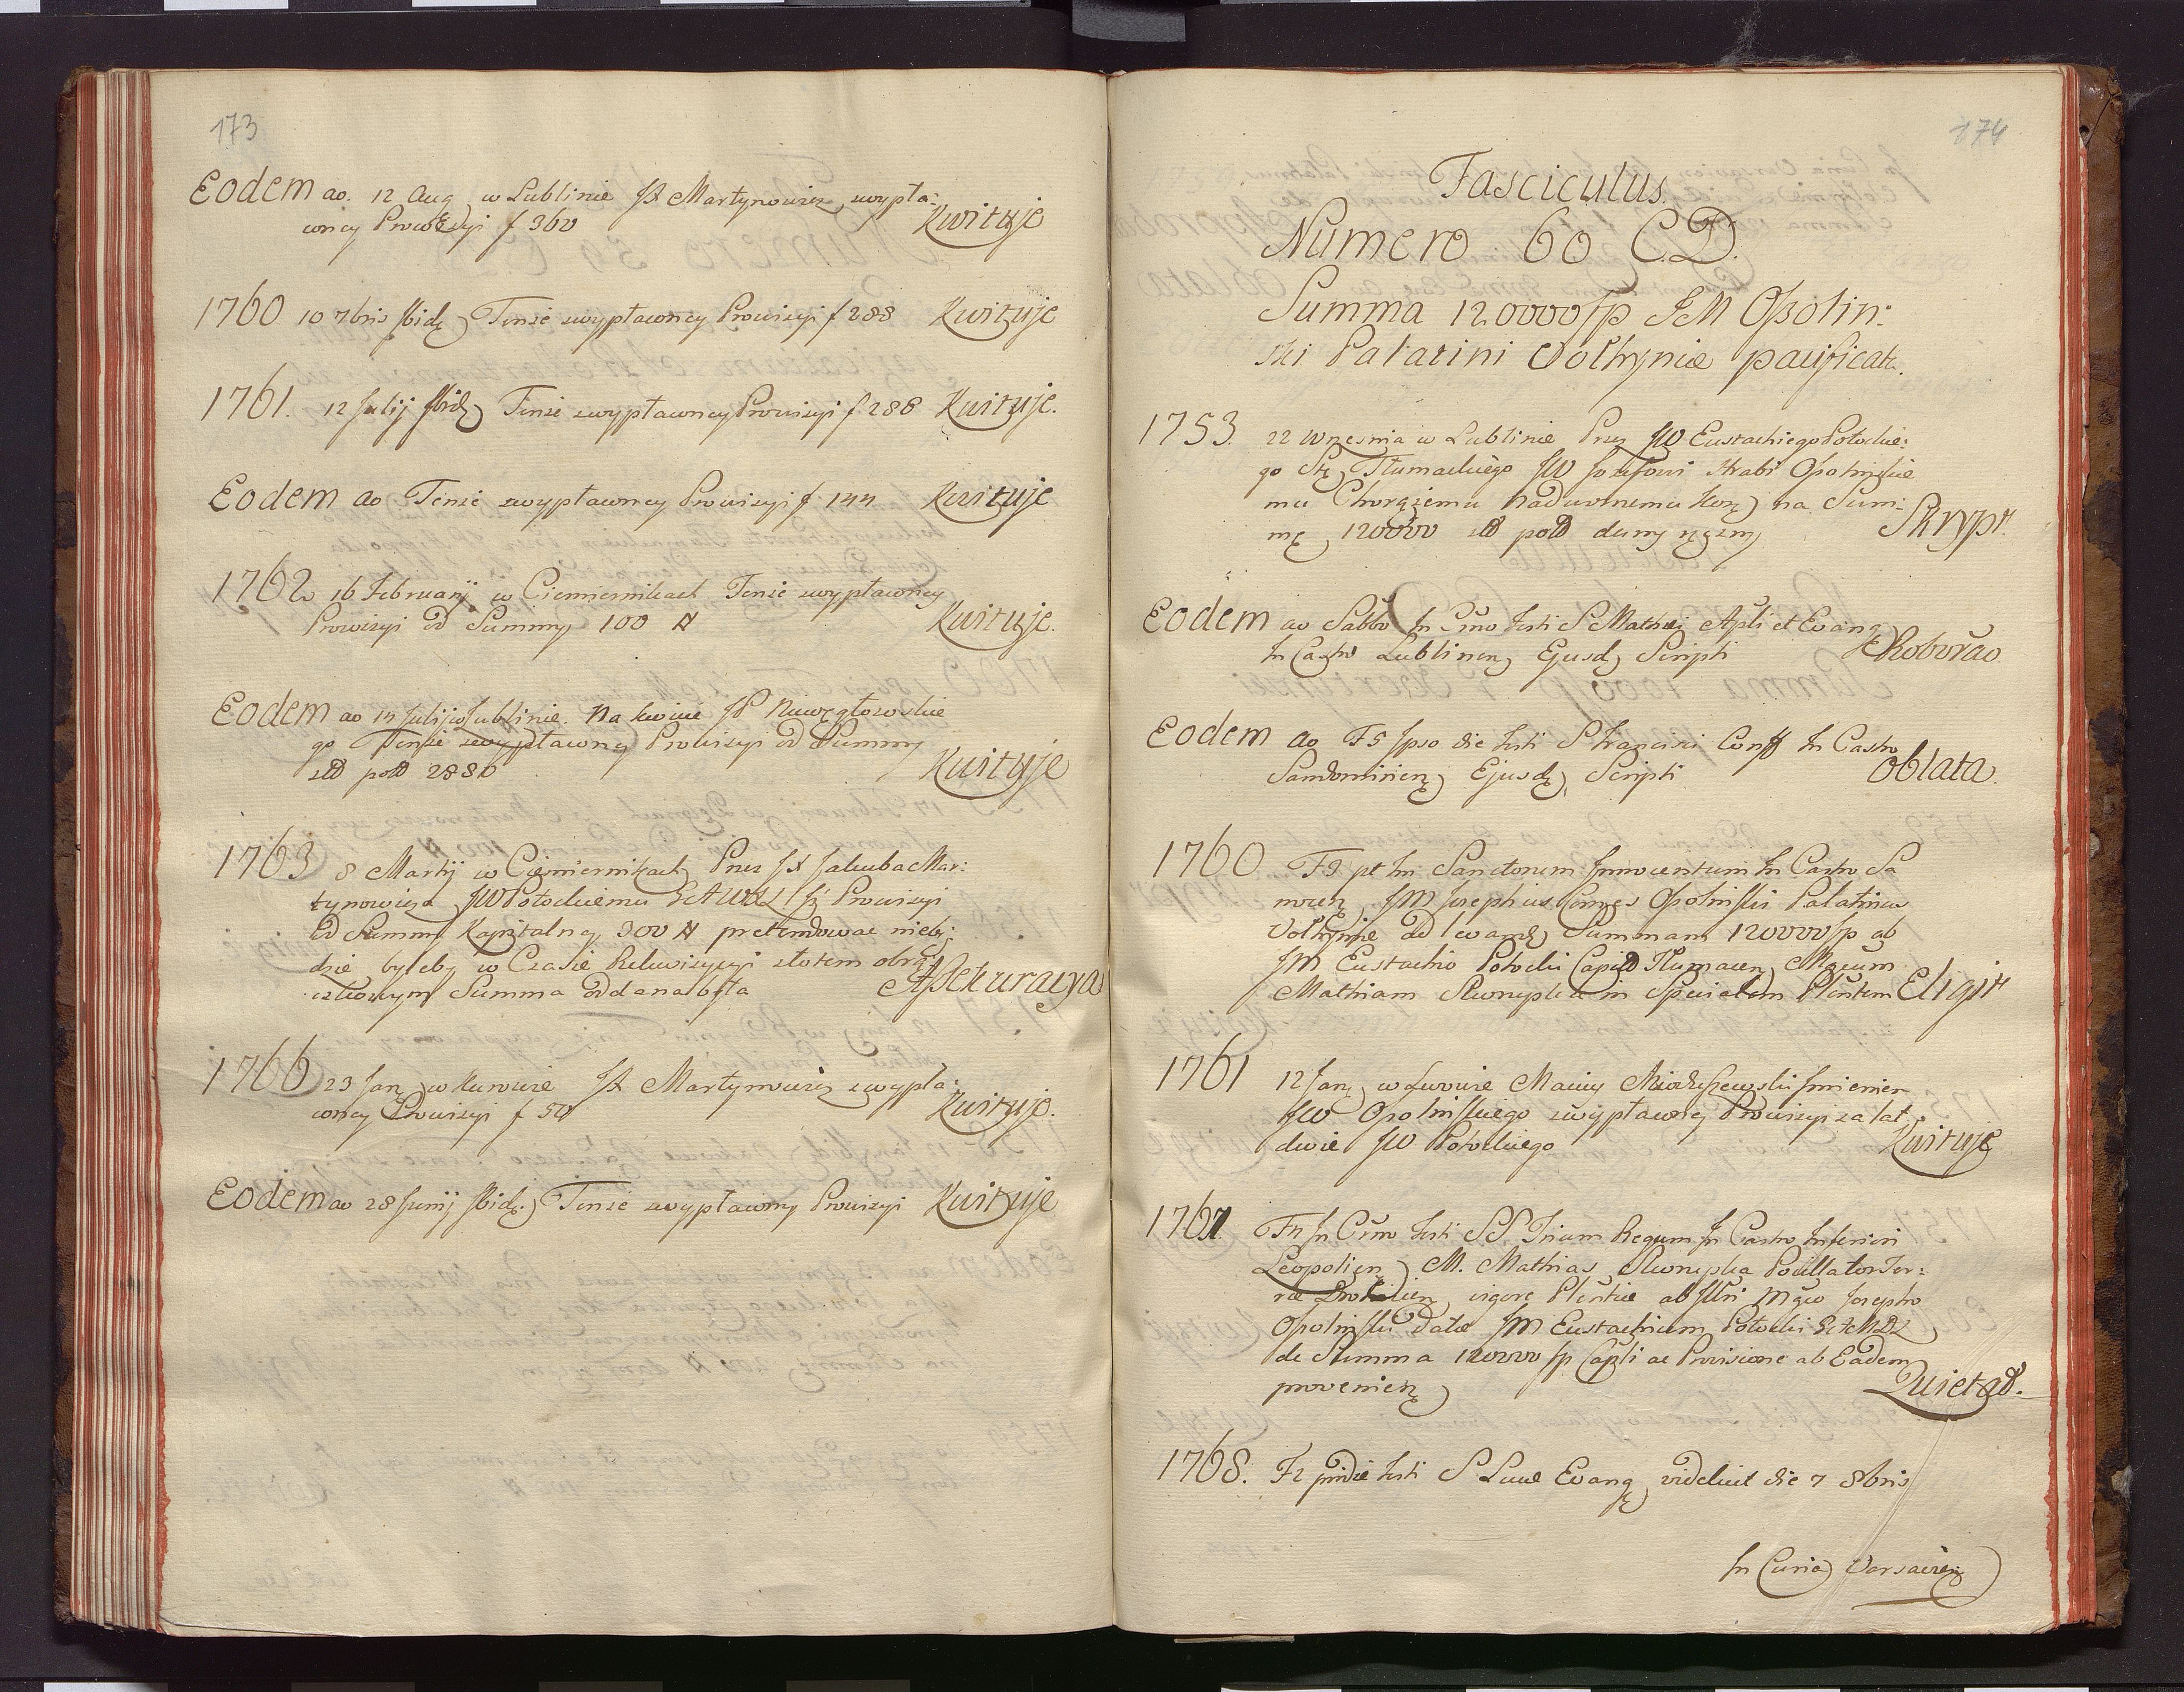 173
Eodem ao. 12 Aug w Lublinie JX Martynowicz zwypła:
coney Prowizyi f 360 Kwituje
1760 10 7bris Ibidę Tenże zwypłaconey Prowizyi f 288 Kwituje
1761. 12 Julij Ibidę Tenże zwypłaconey Prowizyi f 288 Kwituje.
Eodem ao Tenże zwypłaconey Prowizyi f 144 Kwituje
1762 16 Februarij w Ciemiernikach Tenże zwypłaconey
Prowizyi od Summy 100 # Kwituje.
Eodem ao 14 Julij w Lublinie. Na kwicie JP
go Tenże zwypłaconey Prowizyi od Summy
zł pol 2880 Kwituje
1763 8 Martij w Ciemiernikach Przez JX Jakuba Mar:
tynowicza JW Potockiemu Iż Prowizyi
od Summy Kapitalney 300 # pretendować niebę:
dzie byleby w Czasie złotem obrą:
czkowym Summa oddana była Assekuracya
1766 23 Janę w Kurowie JX Martynowicz zwypła:
coney Prowizyi f 54 Kwituje.
Eodem ao 28 Junij Ibidę. Tenże zwypłaconey Prowizyi Kwituje
174
Fasciculus.
Numero 60 C.D.
Summa 120000 fp JM Ossolin:
ski Palatini Volhyniæ pacificata.
1753. 22 Wrzesnia w Lublinie Przez JW Eustachiego Potockie:
go Stę Tłumackiego JW Jozefowi Hrabi Ossolinskie
mu Chorążemu Nadwornemu Korę na Sum:
mę 120000 zł pol dany ręczny Skrypt.
Eodem ao Sabbo In Crno Festi S Mathæi Apli et Evangę
In Castro Lublinenę Ejusdę Scripti Roborao
Eodem ao F5 Ipso die Festi S Francisci Conff In Castro
Sandomirienę Ejusdę Scripti Oblata
1760 F3 pt Fm Sanctorum Innocentum In Castro Sa
nocenę JM Josephus Comes Ossolinski Palatinus
Volhyniæ ad levandę Summam 120000 fp ab
JM Eustachio Potocki Capło Tłumacenę Mgcum
Mathiam Skwupka in Specialem Plentem Eligit
1761 12 Janę w Lwowie Maciey Imieniem
JW Ossolinskiego zwypłaconey Prowizyi za lat
dwie JW Potockiego Kwituje
1767. F4 In Crno Festi SS Trium Regum In Castro Inferiori
Leopolienę M. Mathias Skwupka Pocillator Ter:
ræ vigore Plentiæ ab Illri Mgco Josepho
Ossolinski Datæ JM Eustachium Potocki
de Summa 120000 fp Capli ac Provisione ab Eadem
provenienę Quietat.
1768. F2 pridie Festi S Lucæ Evangę videlicet die 7 8bris
In Curia Varsavienę